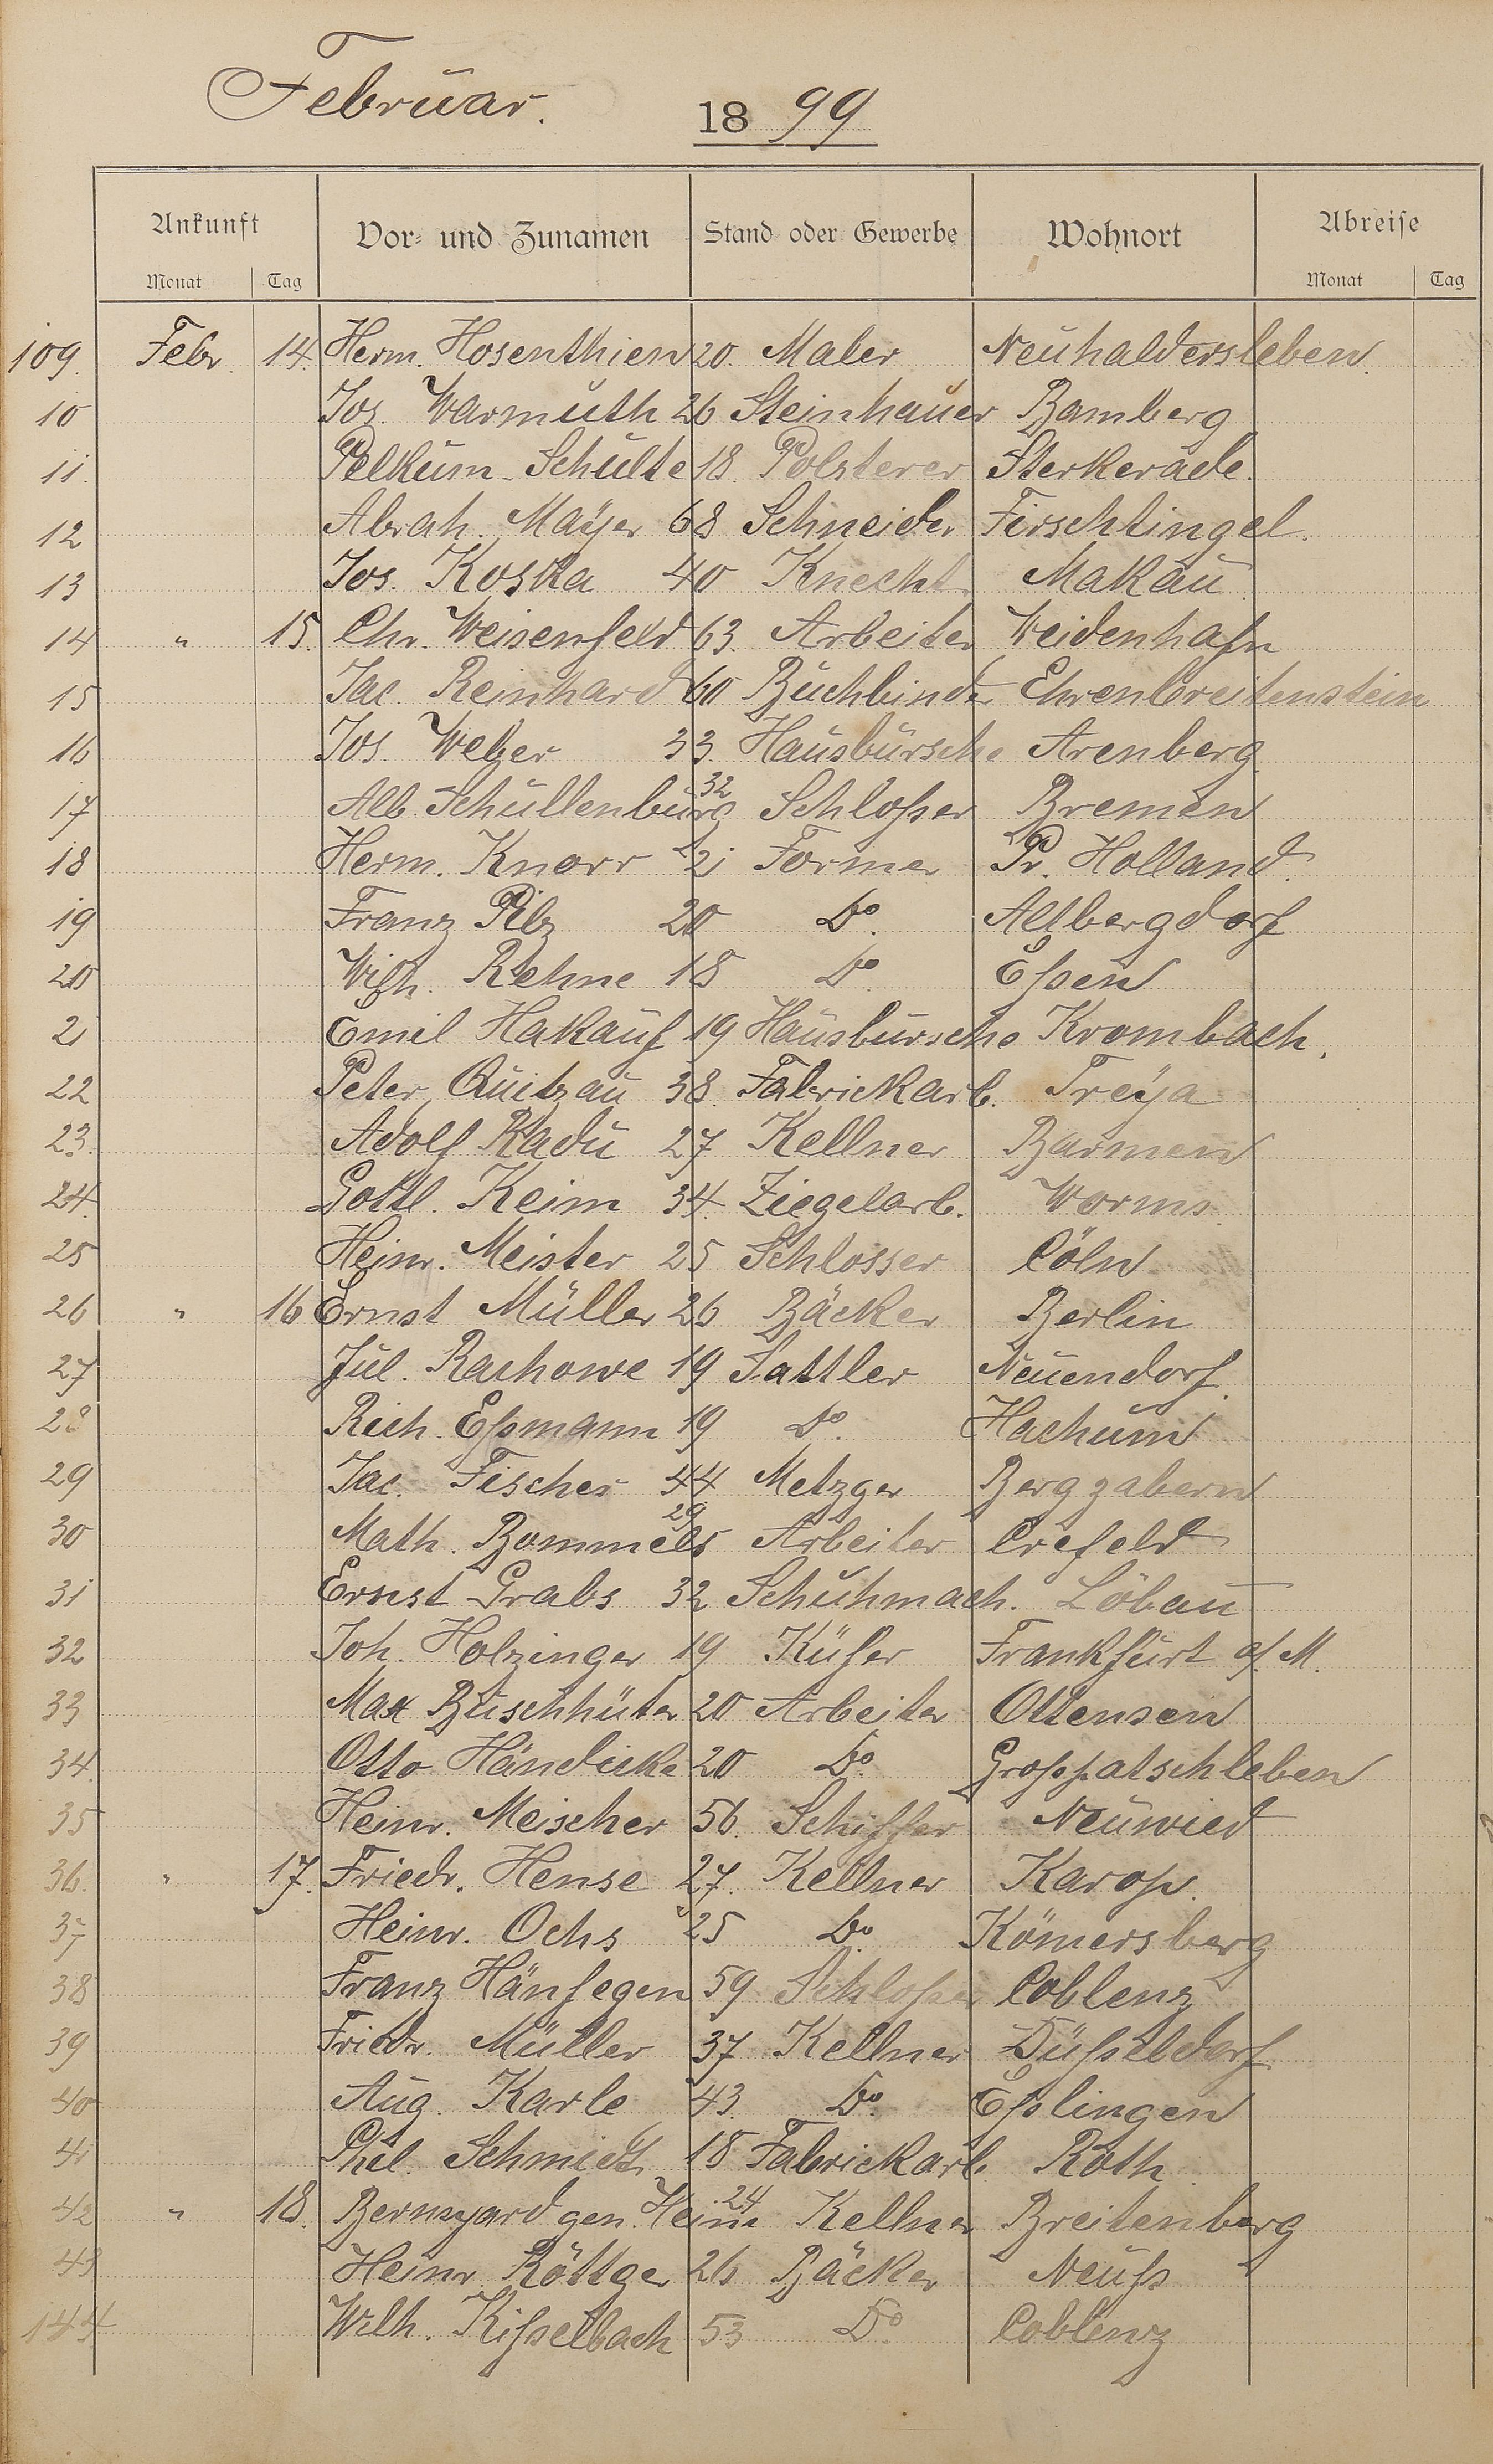 Februar.
1899
Ankunft Vor- und Zunamen Stand oder Gewerbe Wohnort Abreise
Monat Tag Monat Tag
109. Febr. 14. Herm. Hosenthien 20. Maler Neuhaldersleben.
10 Jos. Warmuth 26 Steinhauer Bamberg
11. Pelkum-Schulte 18. Polsterer Sterkerade.
12 Abrah. Mayer 68 Schneider Firschtingel.
13 Jos. Koska 40 Knecht Makau.
14 " 15. Chr. Weisenfeld 63. Arbeiter Weidenhahn
15 Jac. Reinhard 60 Buchbinder Ehrenbreitenstein
16 Jos. Weber 33. Hausbursche Arenberg.
17 Alb. Schullenburg 32 Schloßer Bremen
18 Herm. Knorr 21 Former Pr. Holland.
19 Franz Pilz 20 Do. Altbergdorf
20 Wilh. Rehne 18 Do. Eßen
21 Emil Hakauf 19 Hausbursche Krombach.
22 Peter Quitzau 38. Fabrickarb. Treya
23. Adolf Radu 27 Kellner Barmen
24. Gottl. Keim 34. Ziegelarb. Worms.
25 Heinr. Meister 25 Schlosser Cöln
26 " 16 Ernst Müller 26 Bäcker Berlin
27 Jul. Rachowe 19 Sattler Neuendorf.
28 Rich. Eßmann 19 Do. Hachum
29 Jac. Fischer 44 Metzger Bergzabern
30 Math. Bommels 29 Arbeiter Crefeld
31 Ernst Grabs 32 Schuhmach. Löbau
32 Joh. Holzinger 19 Küfer Frankfurt a/. M.
33 Max Buschhüter 20 Arbeiter Ottensen
34. Otto Händicke 20 Do. Großpatschleben
35 Heinr. Meischer 56. Schiffer Neuwied
36. " 17. Friedr. Hense 27. Kellner Karop.
37 Heinr. Ochs 25 Do. Kömersberg
38 Franz Hänfegen 59 Schloßer Coblenz
39 Friedr. Müller 37 Kellner Düßeldorf
40 Aug. Karle 43. Do. Eßlingen
41 Phil. Schmidt 18 Fabrickarb. Roth.
42 " 18. gen. Heine 24 Kellner Breitenberg
43 Heinr Röttger 26 Bäcker Neuß
144 Wilh. Kißelbach 53 Do. Coblenz